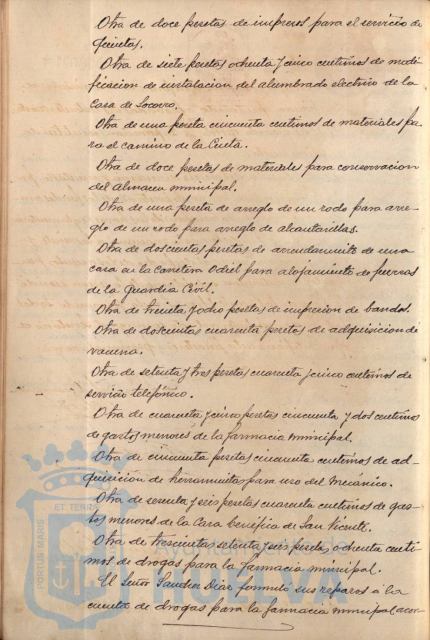 Otra de doce pesetas de impresos para el servicio de
quintas.
Otra de siete pesetas ochenta y cinco centimos de modi-
ficacion de instalacion del alumbrado electrico de la
Casa de Socorro.
Otra de una peseta cincuenta centimos de materiales pa-
ra el camino de la Cinta.
Otra de doce pesetas de materiales para conservacion
del almacen municipal.
Otra de una peseta de arreglo de un rodo para arre-
glo de un rodo para arreglo de alcantarillas.
Otra de doscientas pesetas de arrendamiento de una
casa en la carretera Odiel para alojamiento de fuerzas
de la Guardia Civil.
Otra de treinta y ocho pesetas de impresion de bandos.
Otra de doscientas cuarenta pesetas de adquisicion de
vacuna.
Otra de setenta y tres pesetas cuarenta y cinco centimos de
servicio telefónico.
Otra de cuarenta y cinco pesetas cincuenta y dos centimos
de gastos menores de la farmacia municipal.
Otra de cincuenta pesetas cincuenta centimos de ad-
quisicion de herramientas para uso del Mecánico.
Otra de sesenta y seis pesetas cuarenta centimos de gas-
tos menores de la Casa benefica de San Vicente.
Otra de trescientas setenta y seis pesetas ochenta centi-
mos de drogas para la farmacia municipal.
El Señor Sanchez Diaz formuló sus reparos a la
cuenta de drogas para la farmacia municipal, acor-
PORTUS MARIS ET TERRÆ
HUELVA